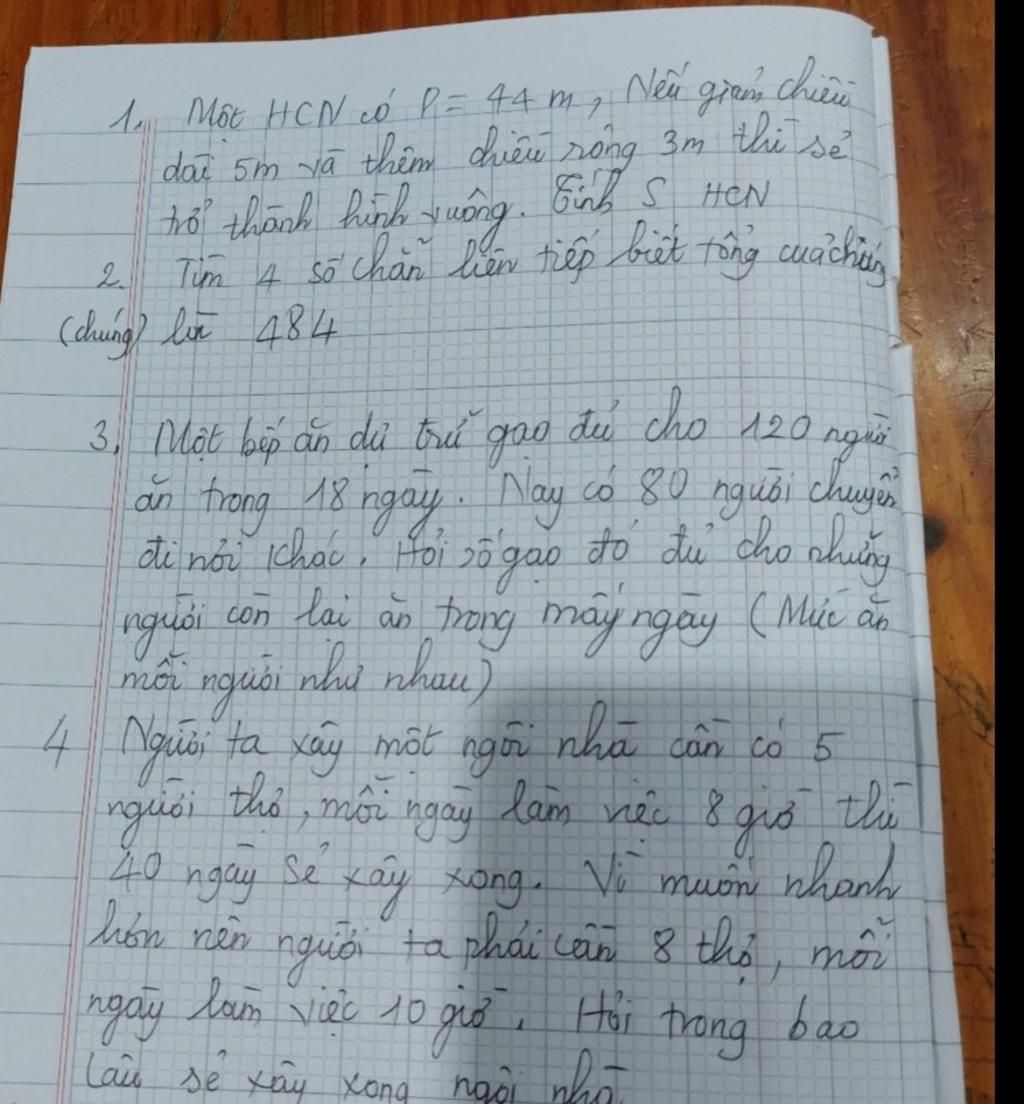 1. Một HCN có P = 44 m, Nếu giảm chiều
dài 5m và thêm chiều rộng 3m thì sẽ
trở thành hình vuông. Tính S HCN
2. Tìm 4 số chẵn liên tiếp biết tổng của chúng
(chúng) là 484
3, Một bếp ăn dự trữ gạo đủ cho 120 người
ăn trong 18 ngày. Nay có 80 người chuyển
đi nơi khác. Hỏi số gạo đó đủ cho những
người còn lại ăn trong mấy ngày (Mức ăn
mỗi người như nhau)
4 Người ta xây một ngôi nhà cần có 5
người thợ, mỗi ngày làm việc 8 giờ thì
40 ngày sẽ xây xong. Vì muốn nhanh
hơn nên người ta phải cần 8 thợ, mỗi
ngày làm việc 10 giờ. Hỏi trong bao
lâu sẽ xây xong ngôi nhà